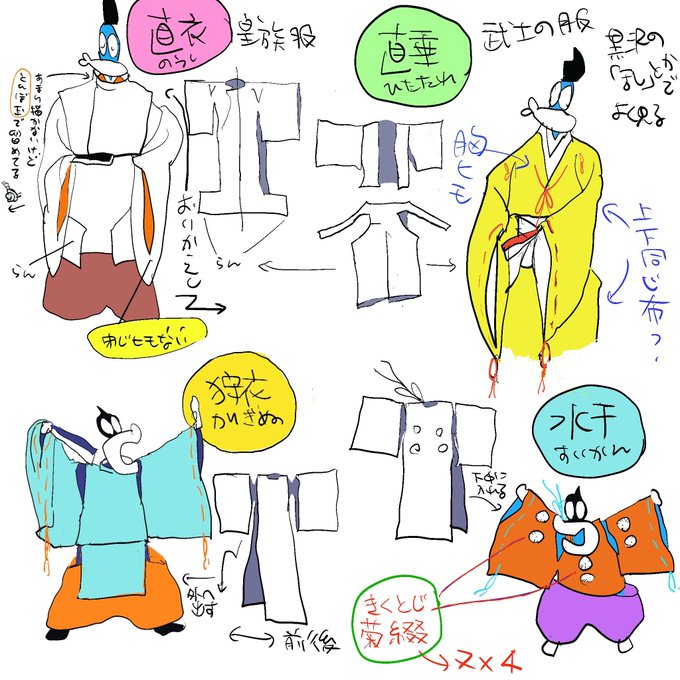 直衣
のうし
皇族服
あまり描かないけど
とんぼ玉で
留めてる
らん
らん
おいかえし
ねじヒモない
直垂
ひたたれ
武士の服
黒沢の
「まし」とかで
よく見る
胸ヒモ
上下同じ布?
狩衣
かりぎぬ
外へ
出す
前後
水干
すいかん
下中に
入れる
きくとじ
菊綴
→2×4